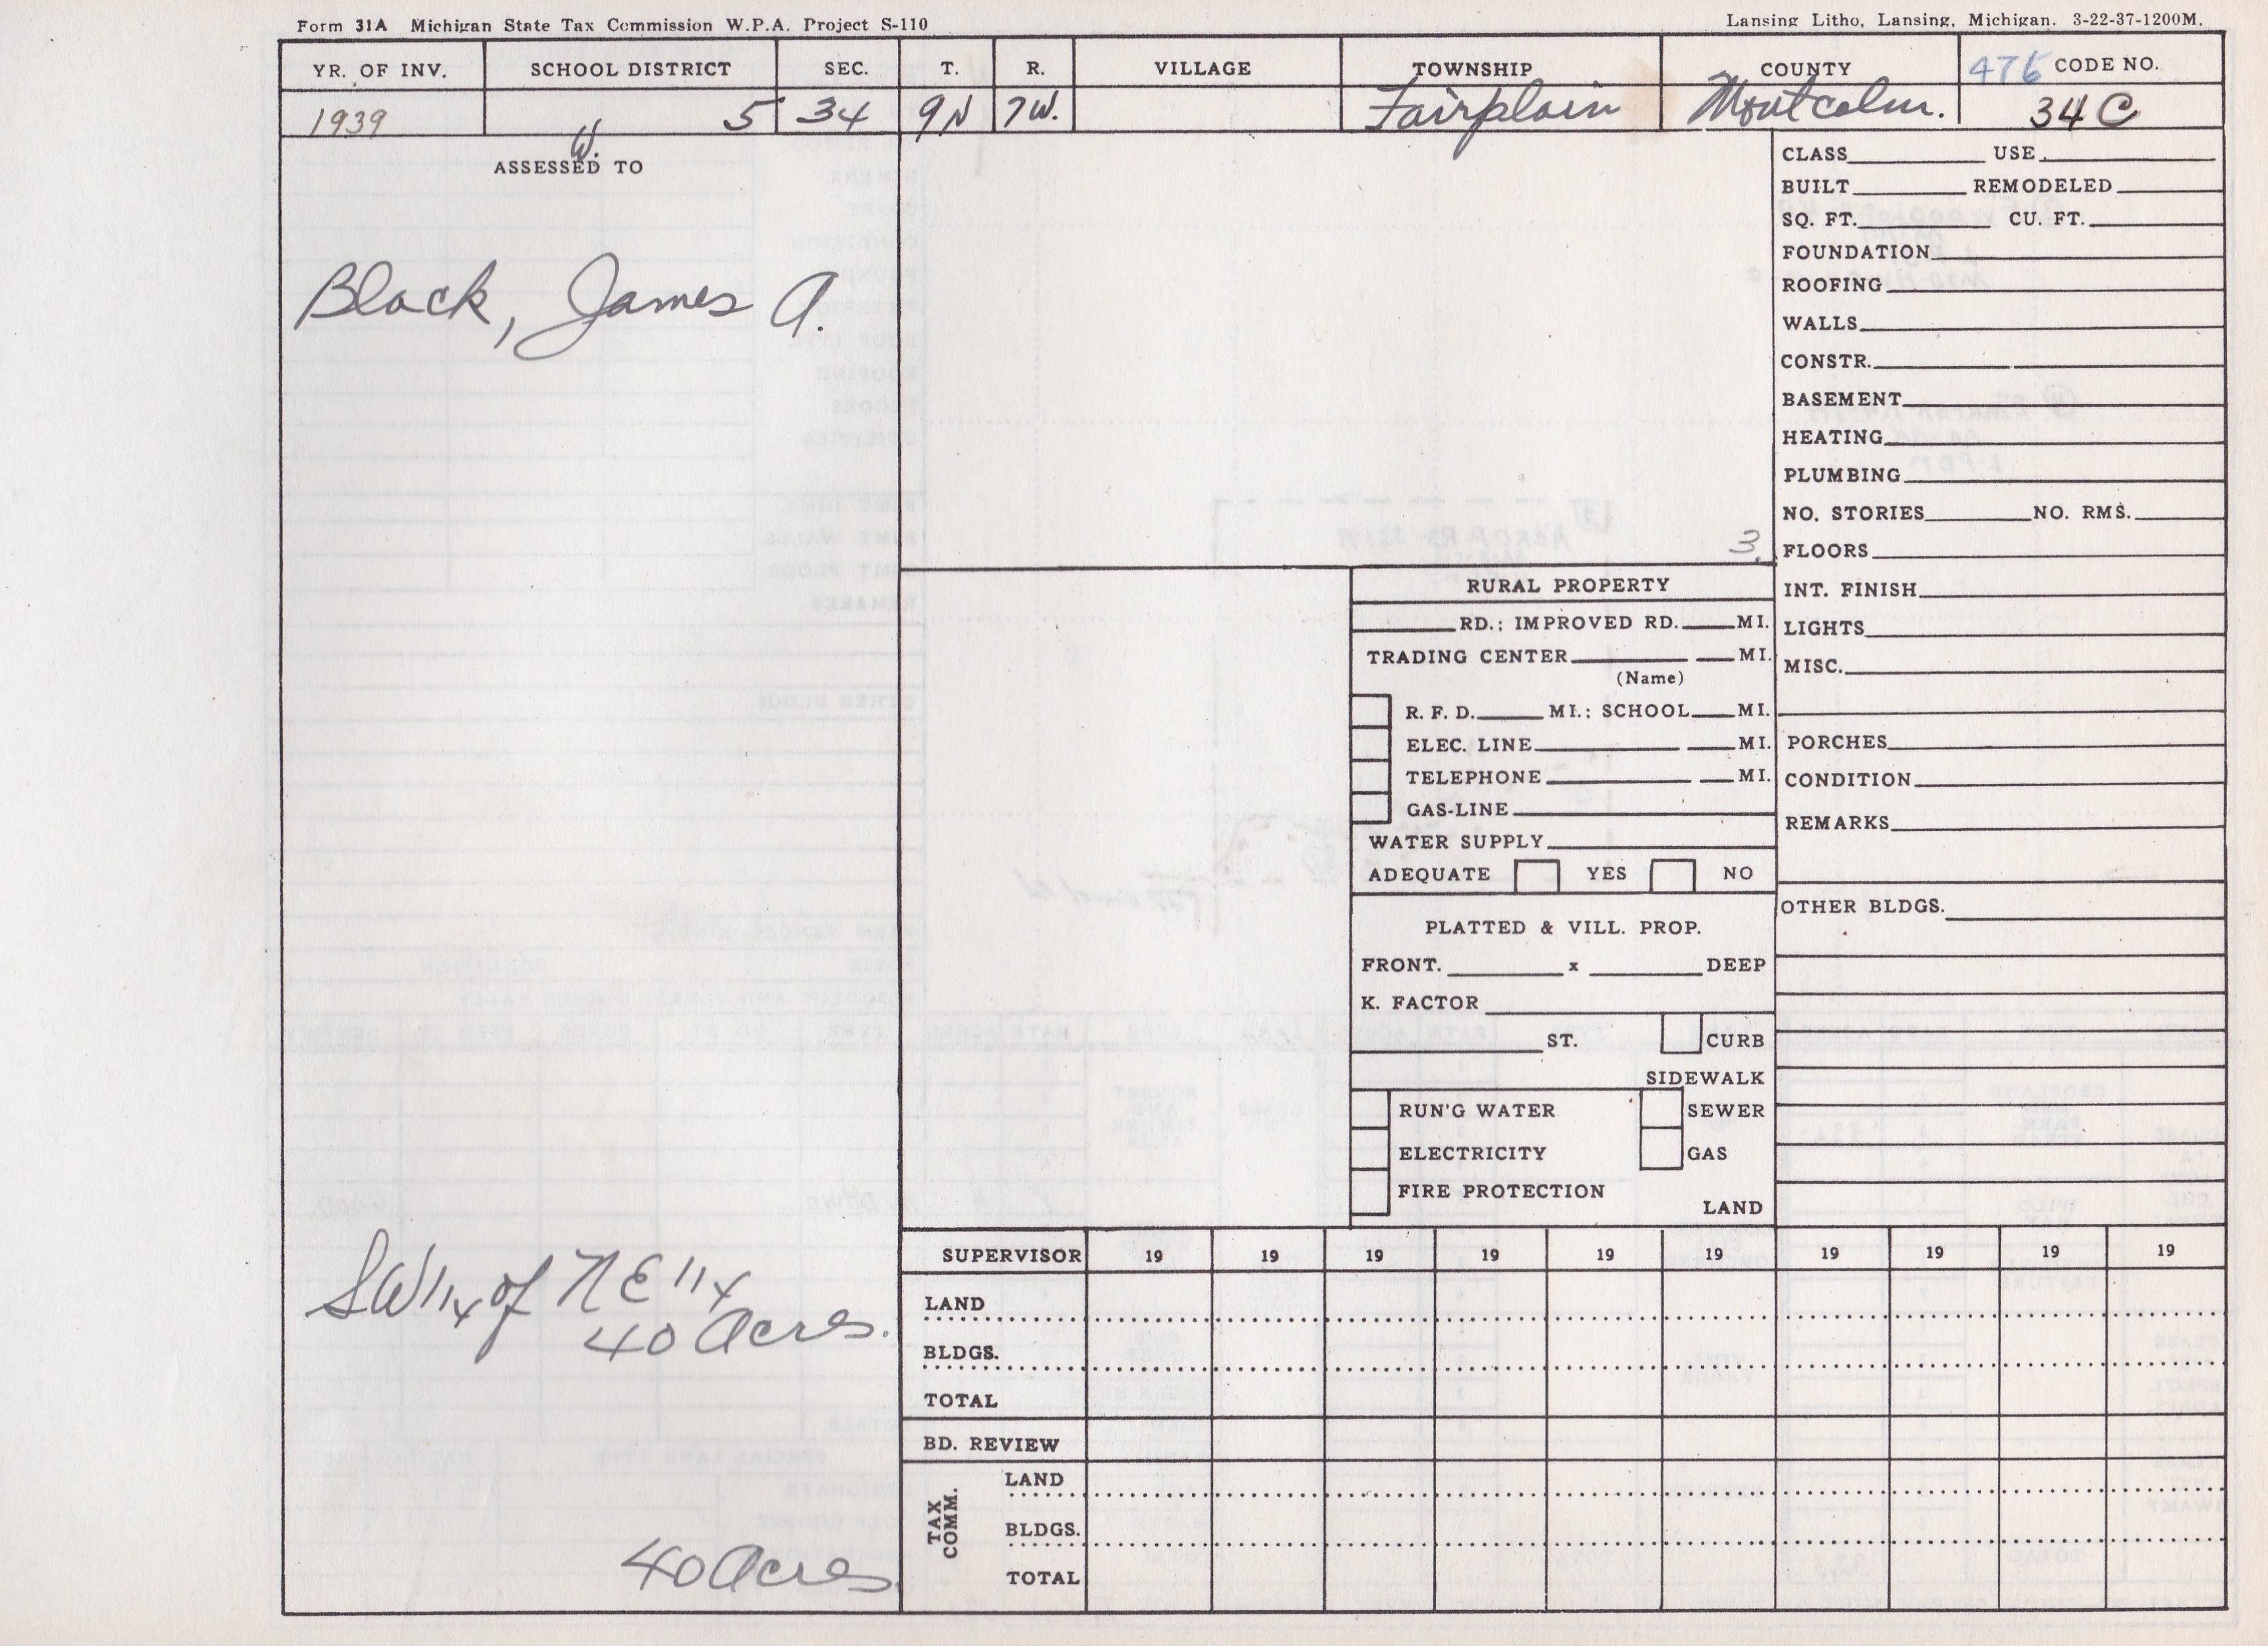 Form 31A Michigan State Tax Commission W.P.A. Project S-110
Lansing Litho, Lansing, Michigan. 3-22-37-1200M.
YR. OF INV. SCHOOL DISTRICT SEC. T. R. VILLAGE TOWNSHIP COUNTY 476 CODE NO.
1939 5 34 9N 7W. Fairplain Montcalm. 34C
W.
ASSESSED TO
Black, James A.
SW 1/4 of NE 1/4
40 Acres.
40 Acres
3.
RURAL PROPERTY
RD.; IMPROVED RD. MI.
TRADING CENTER MI.
(Name)
R. F. D. MI.; SCHOOL MI.
ELEC. LINE MI.
TELEPHONE MI.
GAS-LINE
WATER SUPPLY
ADEQUATE YES NO
PLATTED & VILL. PROP.
FRONT. x DEEP
K. FACTOR
ST. CURB
SIDEWALK
RUN'G WATER SEWER
ELECTRICITY GAS
FIRE PROTECTION
LAND
CLASS USE
BUILT REMODELED
SQ. FT. CU. FT.
FOUNDATION
ROOFING
WALLS
CONSTR.
BASEMENT
HEATING
PLUMBING
NO. STORIES NO. RMS.
FLOORS
INT. FINISH
LIGHTS
MISC.
PORCHES
CONDITION
REMARKS
OTHER BLDGS.
SUPERVISOR 19 19 19 19 19 19 19 19 19 19
LAND
BLDGS.
TOTAL
BD. REVIEW
TAX COMM.
LAND
BLDGS.
TOTAL